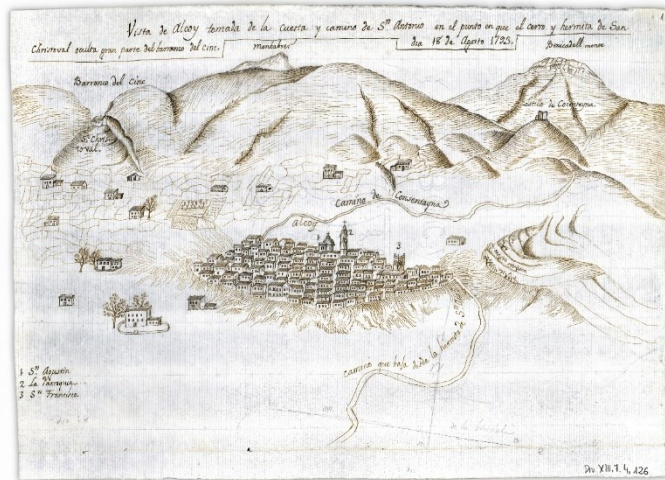 Vista de Alcoy tomada de la Cuesta y camino de Sn. Antonio en el punto en que el cerro y hermita de San
Christoval oculta gran parte del barranco del Cinc. dia 18 de Agosto 1793.
Montcabrer
Benicadell monte
Barranco del Cinc
Castillo de Cocentayna
Sn. Christoval
Camino de Consentayna
Alcoy
1
2
3
camino que baja desde la hermita de Sn.
1 Sn. Agustin
2 La Parroquia
3 Sn. Francisco
de la
Div XIII. 7. 4. 126